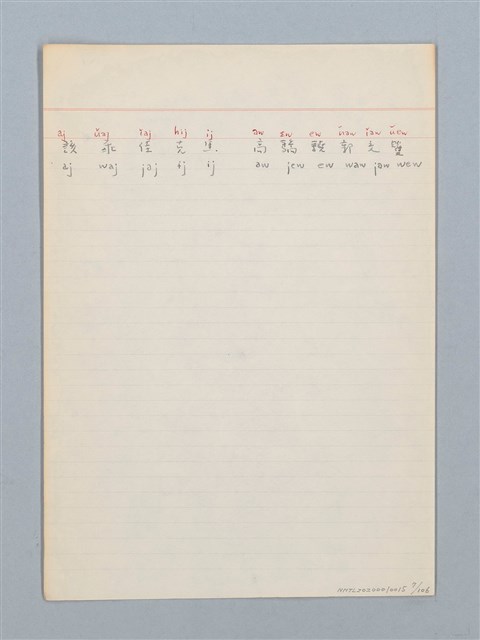 aj ŭaj ĭaj hij ij aw ɛw ew ŭaw ĭaw ŭew
該 乖 佳 克 高 驕 郭 交
aj waj jaj ɨj ij aw jew ew waw jaw wew
NMTL202000/0015 7/106